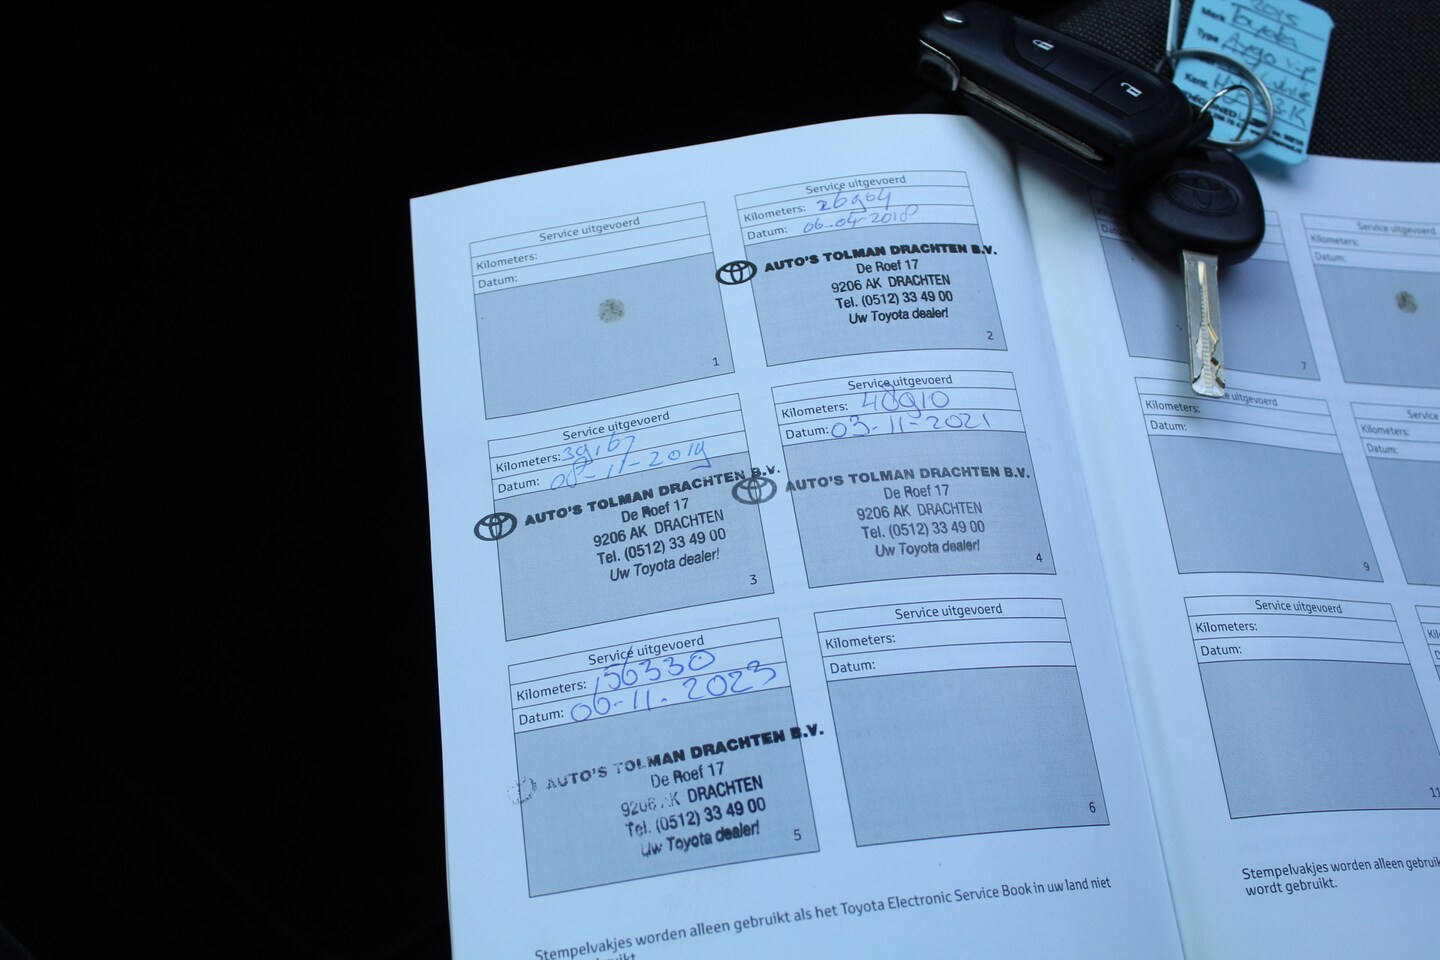 2015
Merk Toyota
Type Aygo
Kent.
Service uitgevoerd
Kilometers:
Datum:
1
Service uitgevoerd
Kilometers: 26964
Datum: 06-04-2018
AUTO'S TOLMAN DRACHTEN B.V.
De Roef 17
9206 AK DRACHTEN
Tel. (0512) 33 49 00
Uw Toyota dealer!
2
Service uitgevoerd
Kilometers: 39167
Datum: 08-11-2019
AUTO'S TOLMAN DRACHTEN B.V.
De Roef 17
9206 AK DRACHTEN
Tel. (0512) 33 49 00
Uw Toyota dealer!
3
Service uitgevoerd
Kilometers: 48910
Datum: 03-11-2021
AUTO'S TOLMAN DRACHTEN B.V.
De Roef 17
9206 AK DRACHTEN
Tel. (0512) 33 49 00
Uw Toyota dealer!
4
Service uitgevoerd
Kilometers: 156330
Datum: 06-11-2023
AUTO'S TOLMAN DRACHTEN B.V.
De Roef 17
9206 AK DRACHTEN
Tel. (0512) 33 49 00
Uw Toyota dealer!
5
Service uitgevoerd
Kilometers:
Datum:
6
Stempelvakjes worden alleen gebruikt als het Toyota Electronic Service Book in uw land niet
7
Service uitgevoerd
Kilometers:
Datum:
uitgevoerd
Kilometers:
Datum:
9
Service
Kilometers:
Datum:
Service uitgevoerd
Kilometers:
Datum:
11
Stempelvakjes worden alleen
wordt gebruikt.